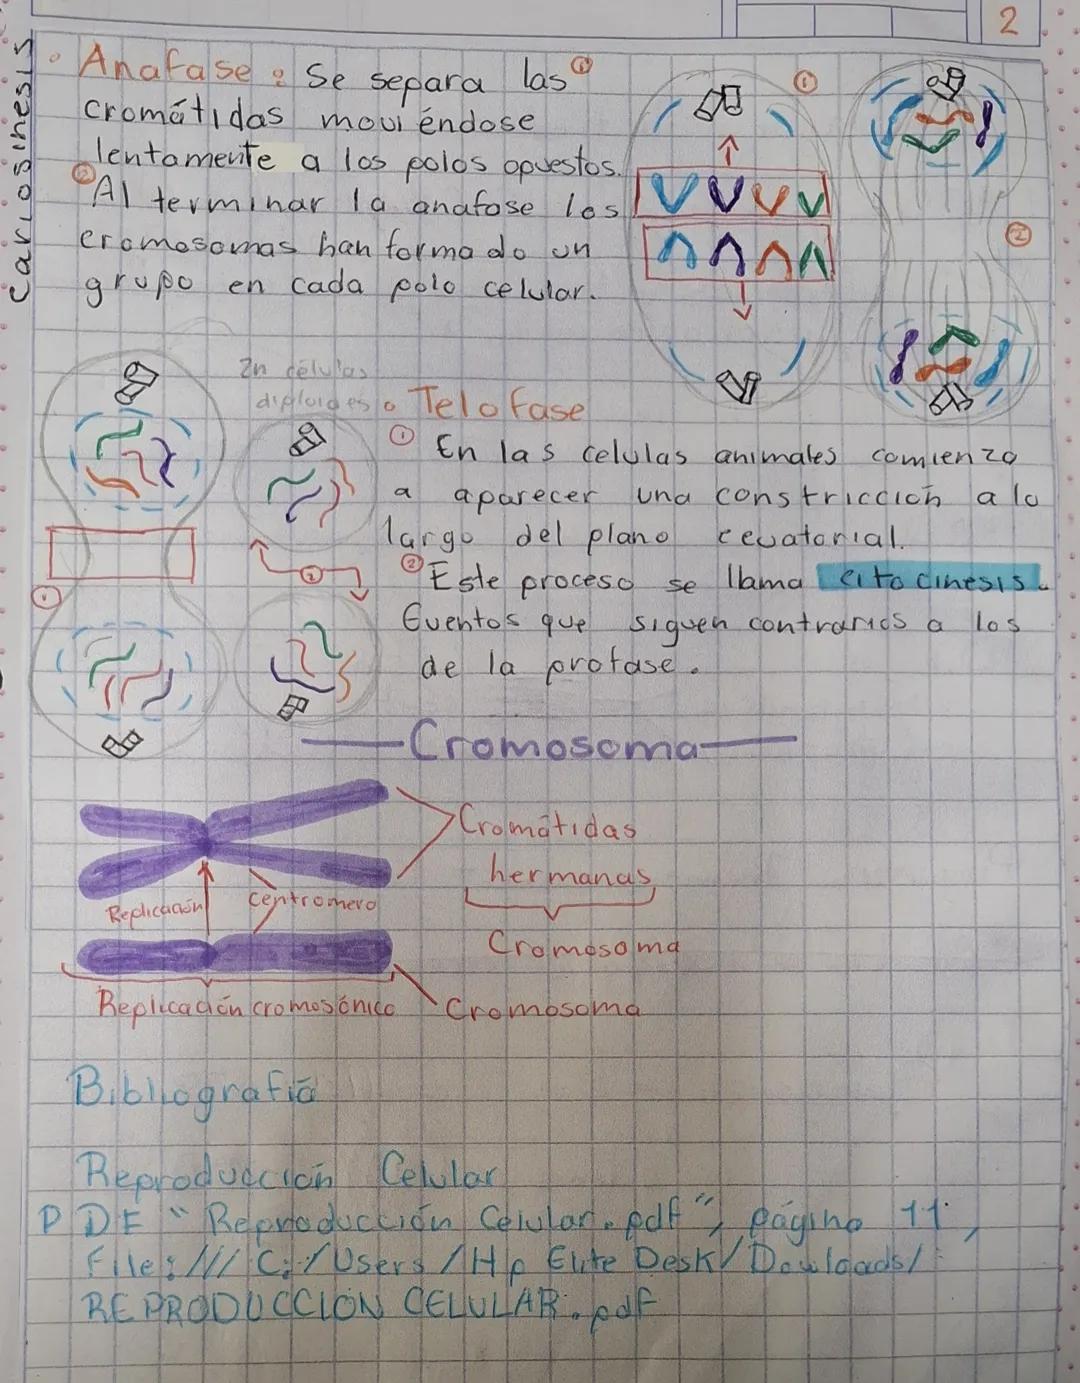 2
Cariosinesis
• Anafase : Se separa las ①
cromátidas moviéndose
lentamente a los polos opuestos.
② Al terminar la anafase los
cromosomas han formado un
grupo en cada polo celular.
①
②
2n células
diploides
• Telofase
① En las celulas animales comienza
a aparecer una constricción a lo
largo del plano ecuatorial.
② Este proceso se llama citocinesis.
Eventos que siguen contrarios a los
de la profase.
①
②
Cromosoma
Cromátidas
hermanas
Cromosoma
Replicación
centromero
Replicación cromosónico
Cromosoma
Bibliografía
Reproducción Celular
PDF "Reproducción Celular.pdf", página 11,
File:/// C:/Users/Hp Elite Desk/Dowloads/
REPRODUCCION CELULAR.pdf